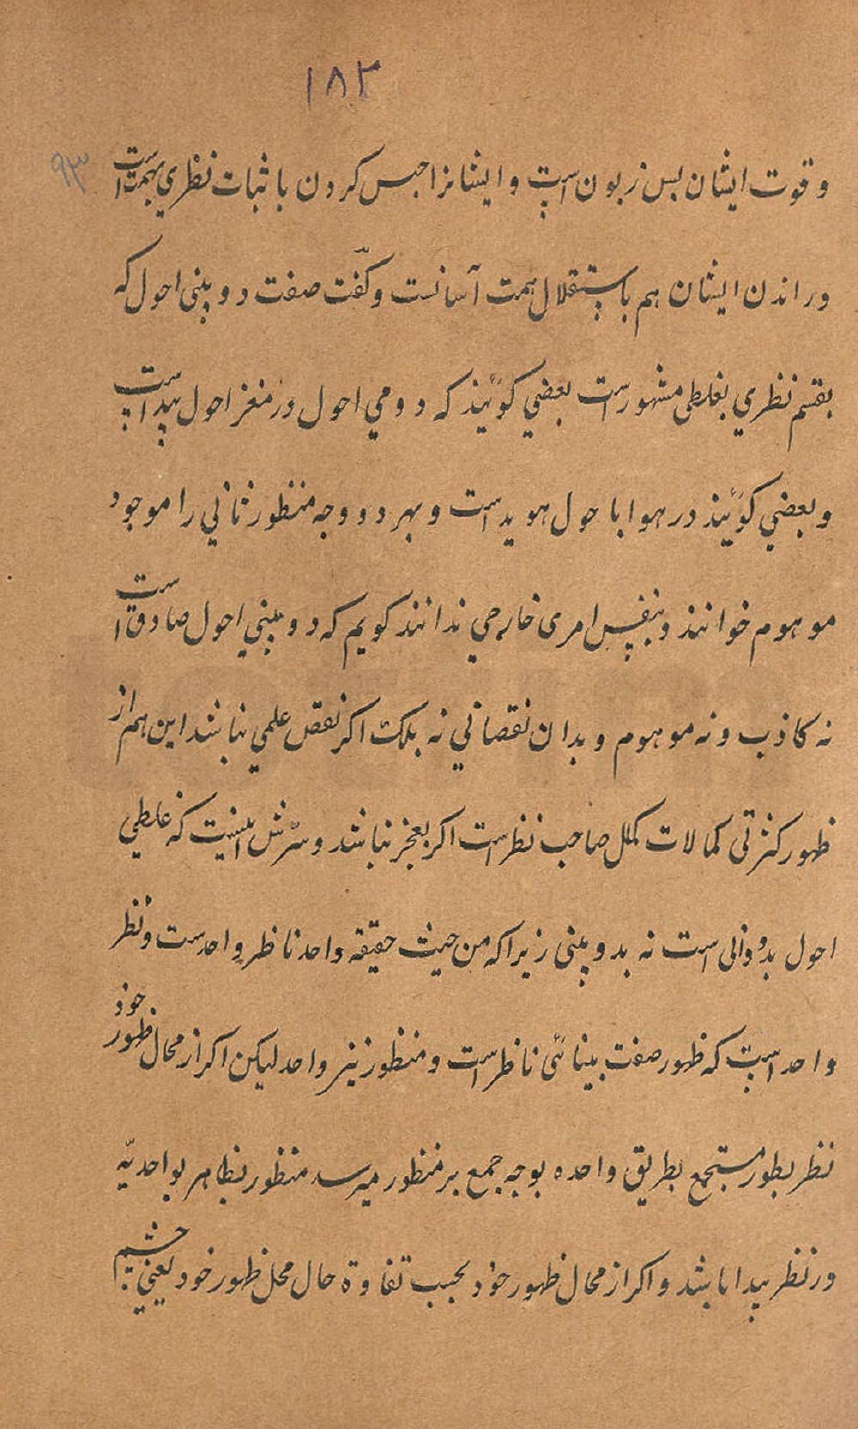 ۱۸۳
۹۳
و قوت ایشان بس زبون است و ایشانرا حبس کردن با ثبات نظری بهمت است
و راندن ایشان هم باستقلال همت آسانست و گفت صفت دو بینی احول که
بقسم نظری بغلطی مشهور است بعضی کویند که دومی احول در مغز احول پیدا است
و بعضی کویند در هوا با حول هویداست و بهر دو وجه منظور ثانی را موجود
موهوم خوانند و بنفس امری خارجی ندانند کویم که دو بینی احول صادق است
نه کاذب و نه موهوم و بدان نقصانی نه بلکه اکر نقص علمی نباشد این هم از
ظهور کثرتی کمالات مکمل صاحب نظر است اکر بعجز نباشد و سرّش اینست که غلطی
احول بدودانی است نه بدو بینی زیرا که من حیث حقیقه واحد ناظر واحدست و نظر
واحد است که ظهور صفت بینائی ناظر است و منظور نیز واحد لیکن اکر از محال ظهور خود
نظر بطور مستجمع بطریق واحده بوجه جمع بر منظور میرسد منظور بظاهر بواحدیه
در نظر پیدا باشد و اکر از محال ظهور خود بحسب تفاوة حال محل ظهور خود یعنی چشم